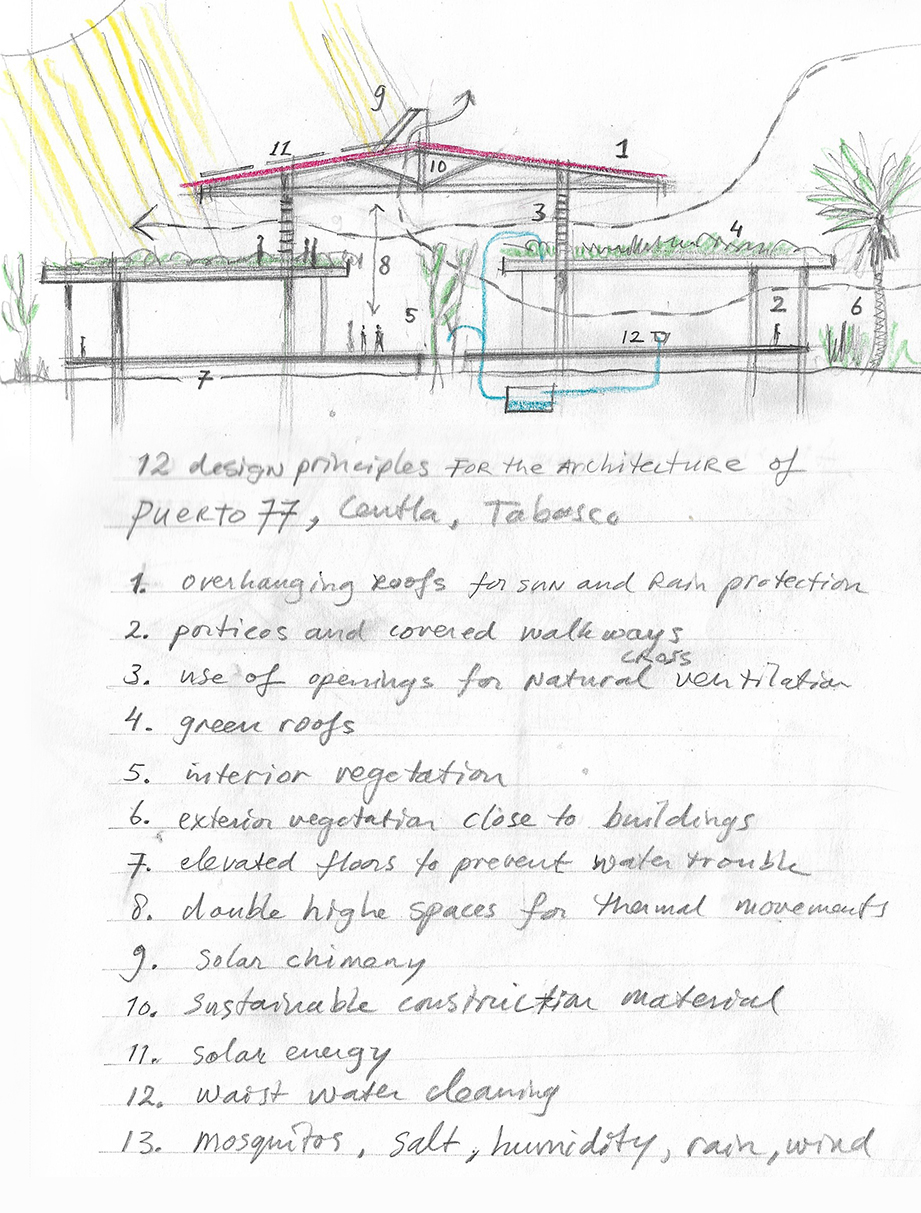 9
11
1
10
3
4
8
5
2
6
12
7
12 design principles FOR the ARchitectuRE of
PUERTO 77, Centla, Tabasco
1. overhanging Roofs for sun and Rain protection
2. porticos and covered walkways
cRoss
3. use of openings for Natural ventilation
4. green roofs
5. interior vegetation
6. exterior vegetation close to buildings
7. elevated floors to prevent water trouble
8. double highe spaces for thermal movements
9. solar chimany
10. sustainable construction material
11. solar energy
12. waist water cleaning
13. mosquitos, salt, humidity, rain, wind